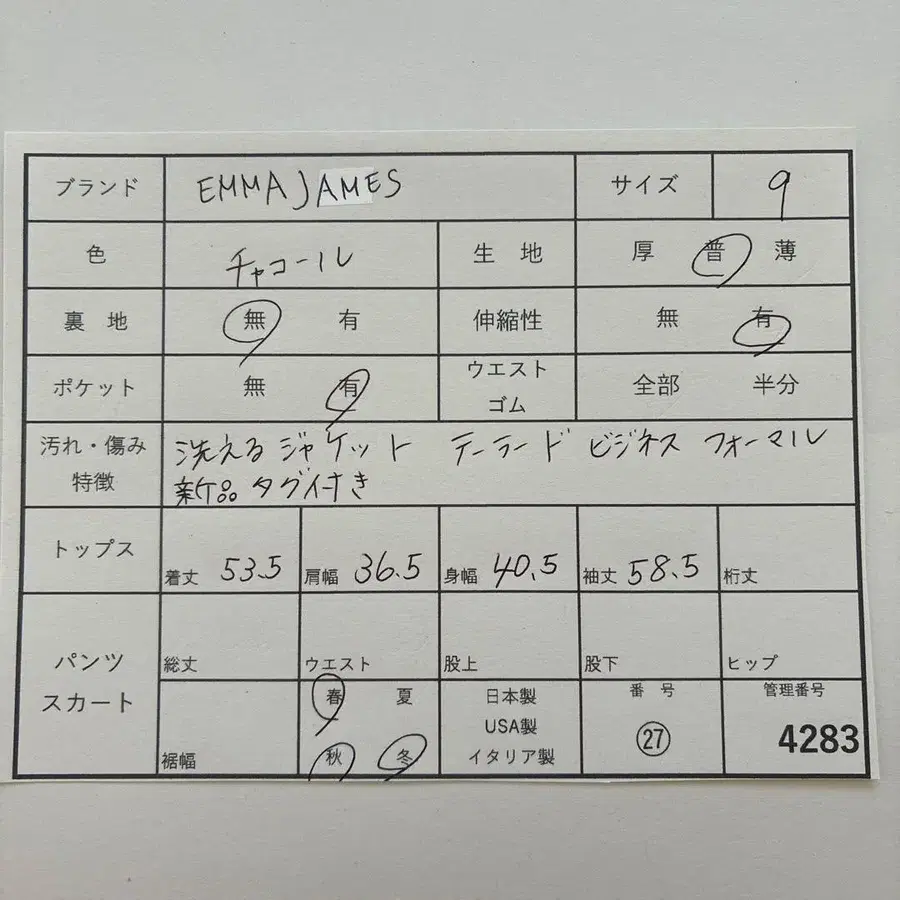 ブランド EMMA JAMES サイズ 9
色 チャコール 生地 厚 普 薄
裏地 無 有 伸縮性 無 有
ポケット 無 有 ウエスト
ゴム 全部 半分
汚れ・傷み 洗えるジャケット テーラード ビジネス フォーマル
特徴 新品タグ付き
トップス 着丈 53.5 肩幅 36.5 身幅 40.5 袖丈 58.5 裄丈
パンツ
スカート
総丈 ウエスト 股上 股下 ヒップ
裾幅
春 夏
秋 冬
日本製
USA製
イタリア製
番号
㉗
管理番号
4283